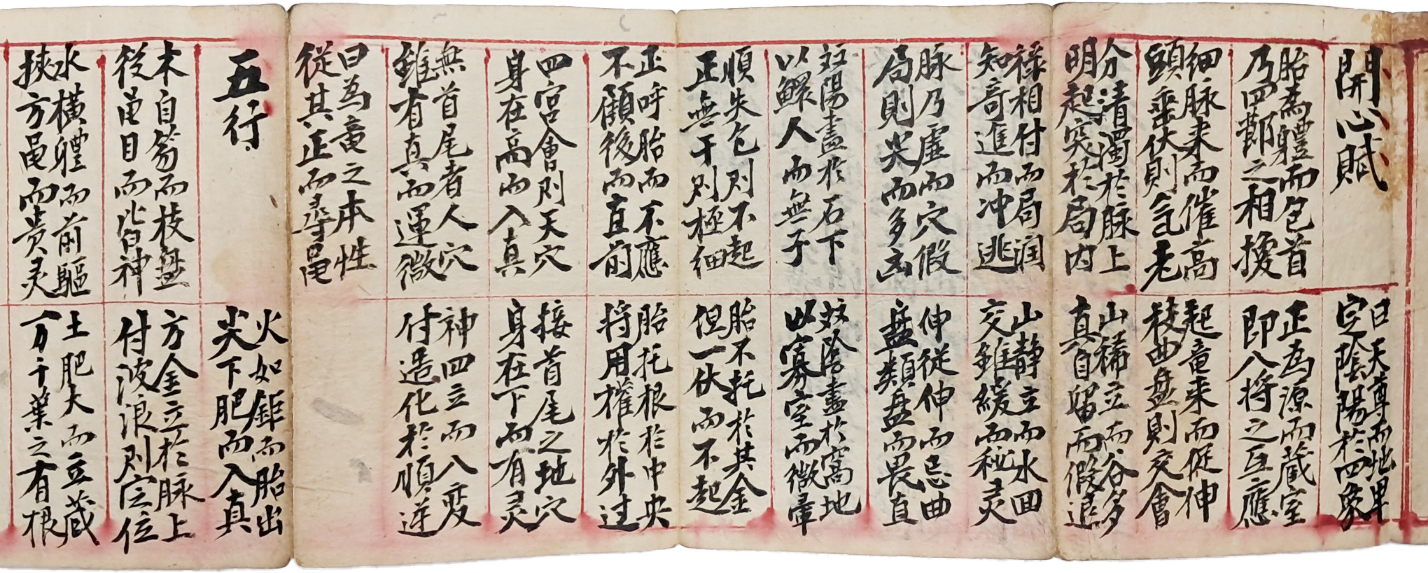 開心賦
曰天尊而地卑
定陰陽於四象
胎為體而包首
乃四鄰之相擾
正為源而藏室
即八将之互應
細脉来而催高
頭垂伏則气老
起竜来而促神
棱曲盘則交會
分清濁於脉上
明起突於局内
山稀立而谷多
真自留而假追
禄相付而局润
知奇進而冲逃
山静立而水回
交雖緩而秘灵
脉乃虛而穴假
局則尖而多凶
伸從伸而忌曲
盘類盘而畏直
奴陽盡於石下
以鰥人而無子
奴陰盡於窩地
以寡室而微
順失乞則不起
正無干則極細
胎不托於其金
但一伏而不起
正呼胎而不應
不顧後而直前
胎托根於中央
将用權於外过
四宮會則天穴
身在高而入真
接首尾之地穴
身在下而有灵
無首尾者人穴
雖有真而運微
神四立而八变
付造化於順逆
曰為竜之本性
從其正而尋黾
五行
火如鉅而胎出
尖下肥而入真
木自笏而枝盘
後黾目而皆神
方金立於脉上
付波浪則定位
水横體而前驅
挾方黾而贵灵
土肥大而立藏
万千葉之有根